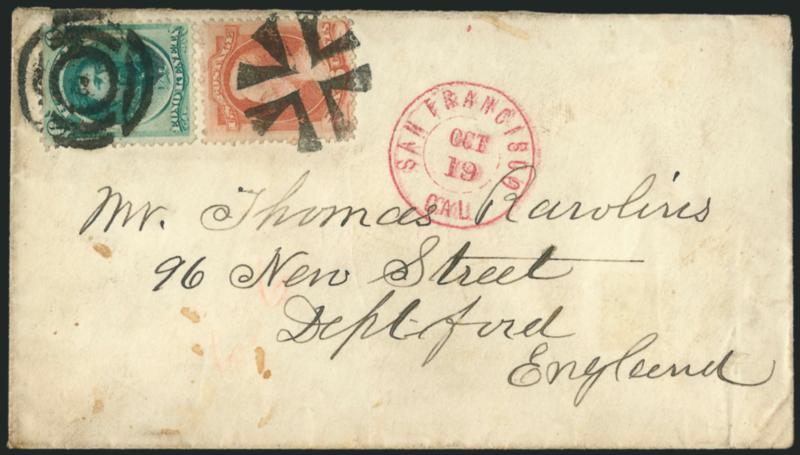 POSTAGE
SAN FRANCISCO
OCT
19
CAL
Mr. Thomas Rawlins
96 New Street
Dept-ford
England